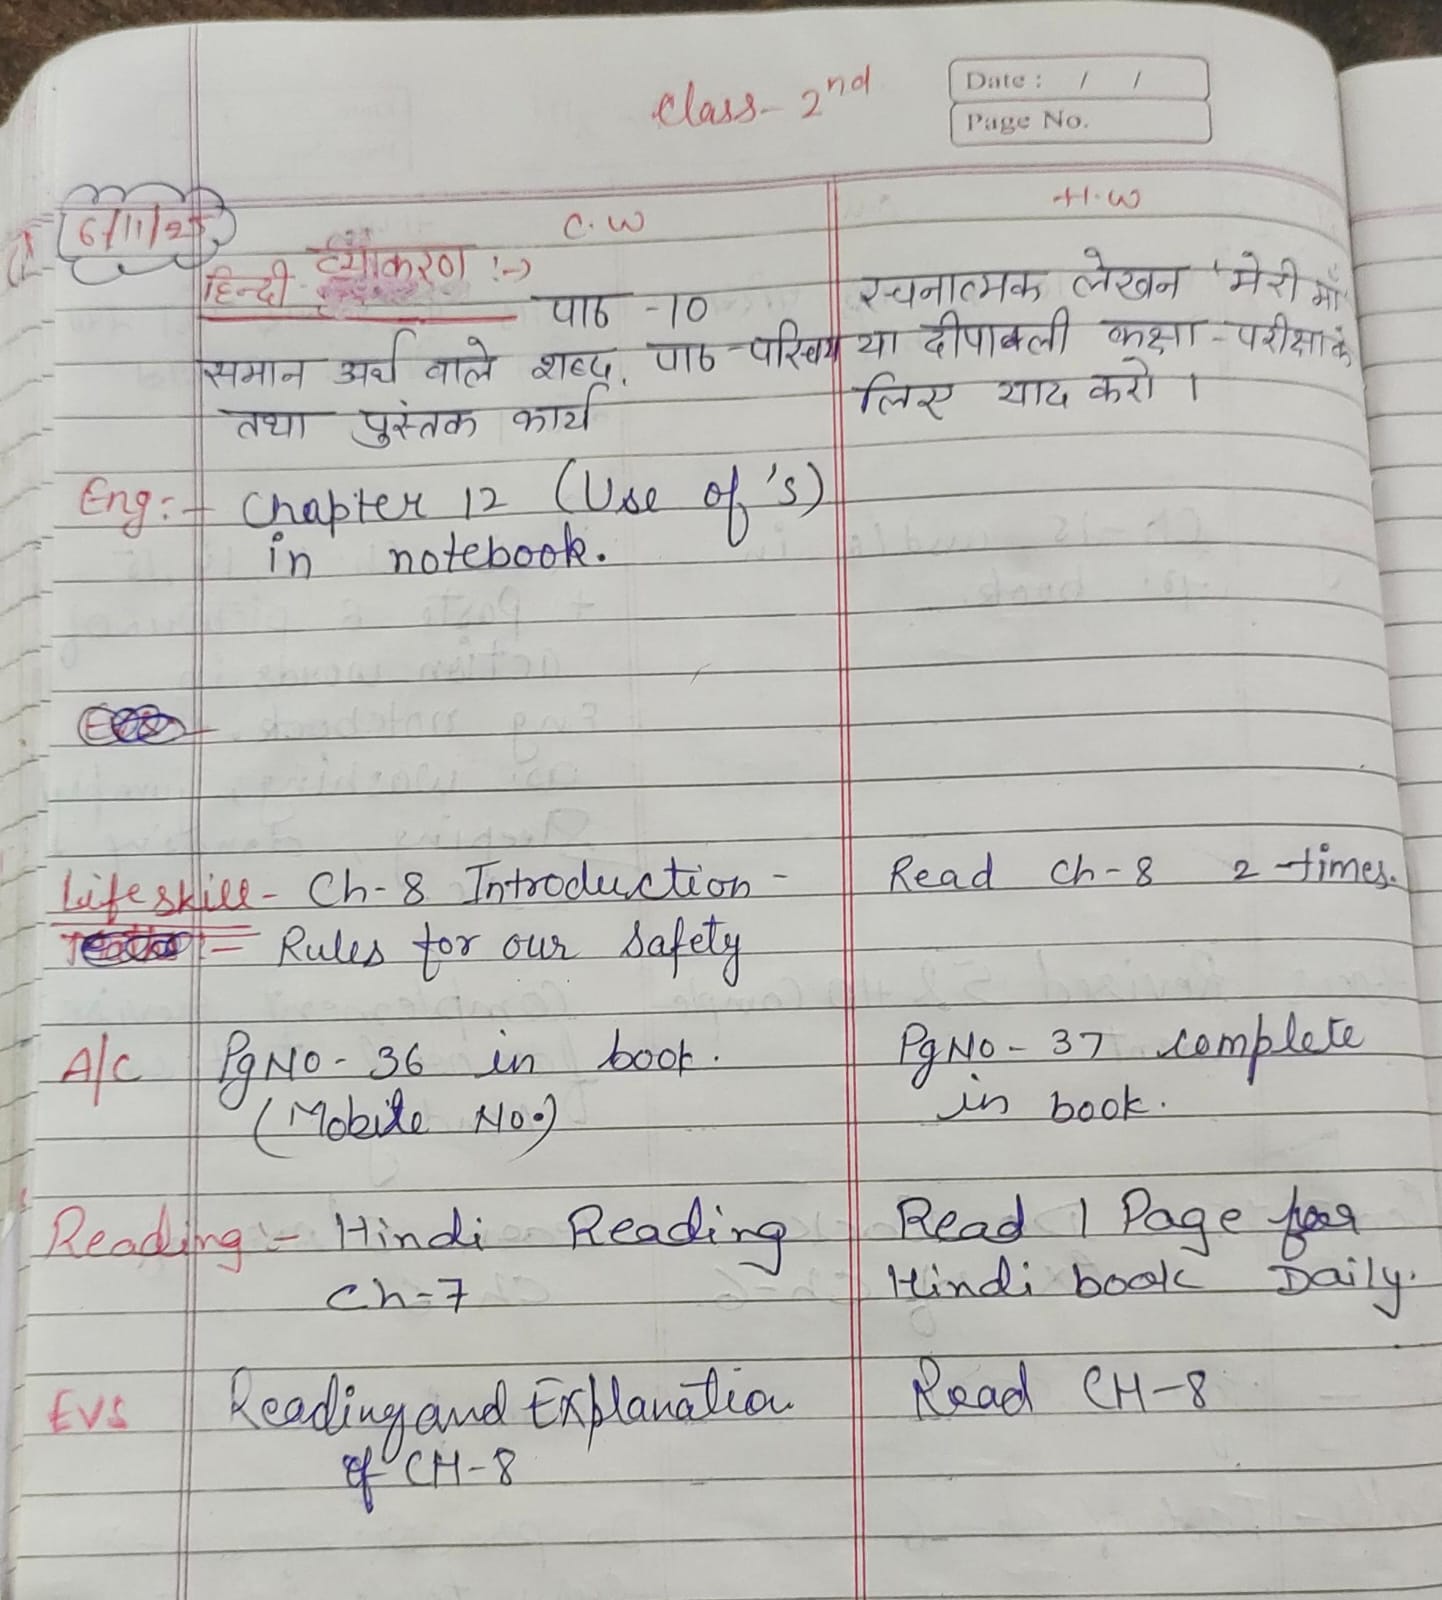 Class- 2nd
Date : / /
Page No.
6/11/25
C.W
H.W
हिन्दी व्याकरण :->
पाठ -10
समान अर्थ वाले शब्द, पाठ-परिचय
तथा पुस्तक कार्य
रचनात्मक लेखन 'मेरी माँ
या दीपावली कक्षा-परीक्षा के
लिए याद करो ।
Eng:- Chapter 12 (Use of 's)
in notebook.
Lifeskill- Ch-8 Introduction -
Rules for our Safety
Read Ch-8 2 times.
A/C PgNo- 36 in book.
(Mobile No.)
PgNo- 37 complete
in book.
Reading:- Hindi Reading
Ch-7
Read 1 Page for
Hindi book Daily.
EVS Reading and Explanation
of CH-8
Read CH-8